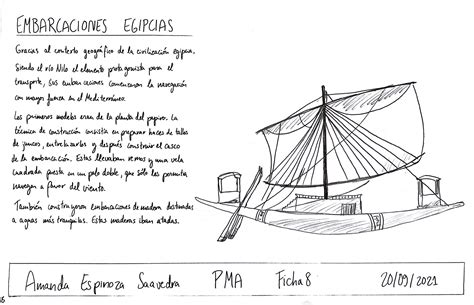 EMBARCACIONES EGIPCIAS
Gracias al contexto geográfico de la civilización egipcia.
Siendo el río Nilo el elemento protagonista para el
transporte, sus embarcaciones comenzaron la navegación
con mayor fuerza en el Mediterráneo.
Los primeros modelos eran de la planta del papiro. La
técnica de construcción consistía en preparar haces de tallos
de juncos, entrelazarlos y después construir el casco
de la embarcación. Estas llevaban remos y una vela
cuadrada puesta en un palo doble, que sólo les permitía
navegar a favor del viento.
También construyeron embarcaciones de madera destinadas
a aguas más tranquilas. Estas maderas iban atadas.
Amanda Espinoza Saavedra PMA Ficha 8 20/09/2021